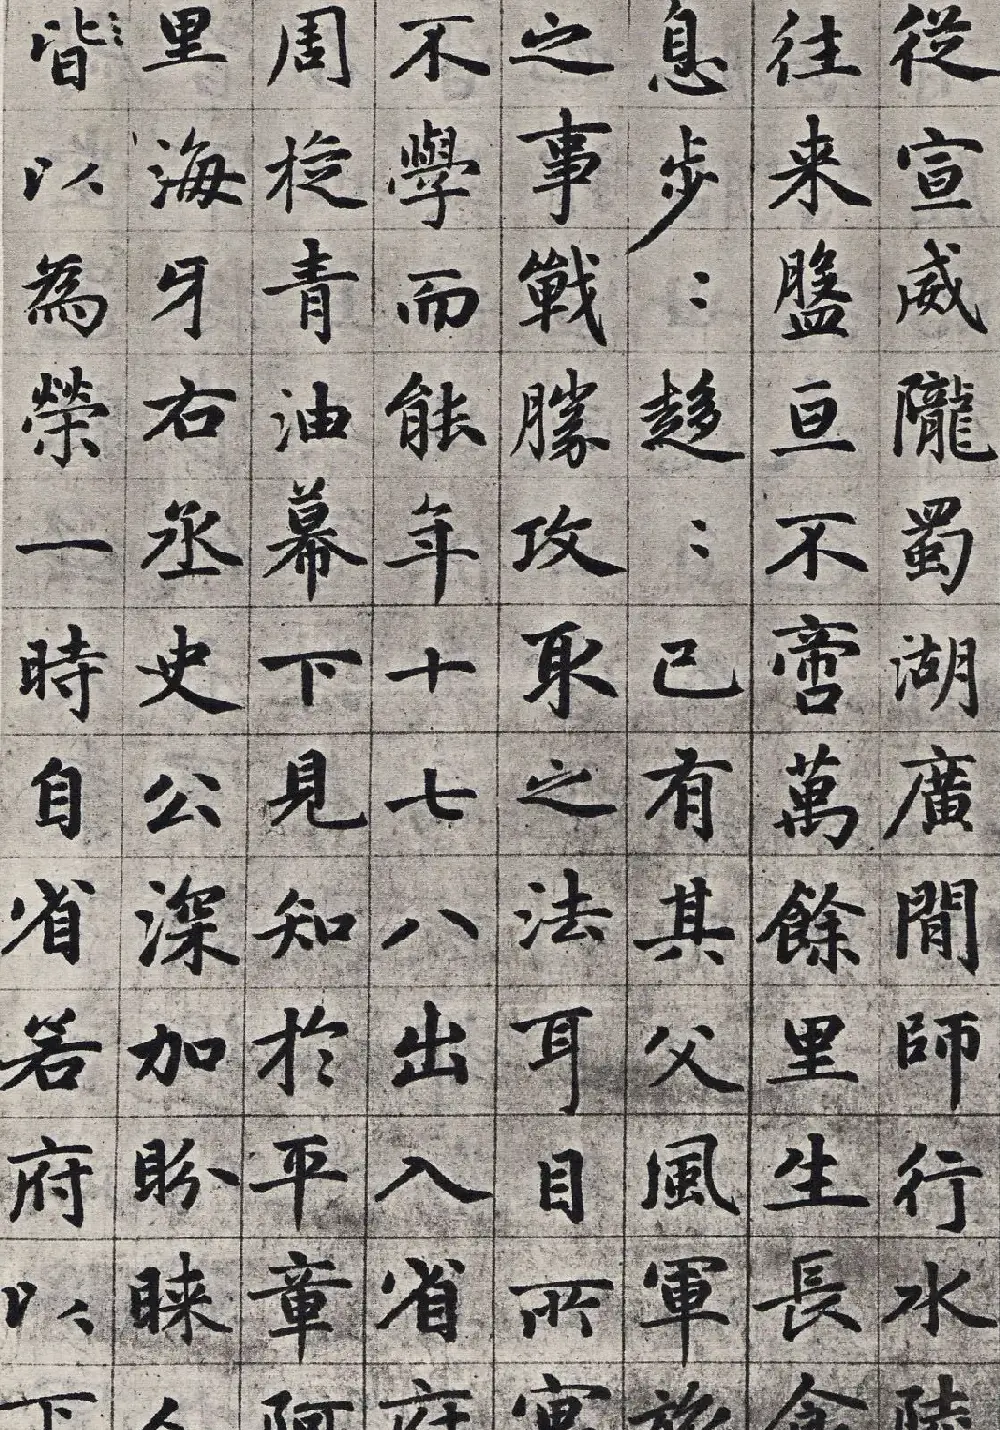 從宣威隴蜀湖廣間師行水陸
往来盤亘不啻萬餘里生長食
息步〻趍〻已有其父風軍旅
之事戰勝攻取之法耳目所寓
不學而能年十七八出入省府
周旋青油幕下見知於平章阿
里海牙右丞史公深加盼睞人
皆以為榮一時自省若府以下